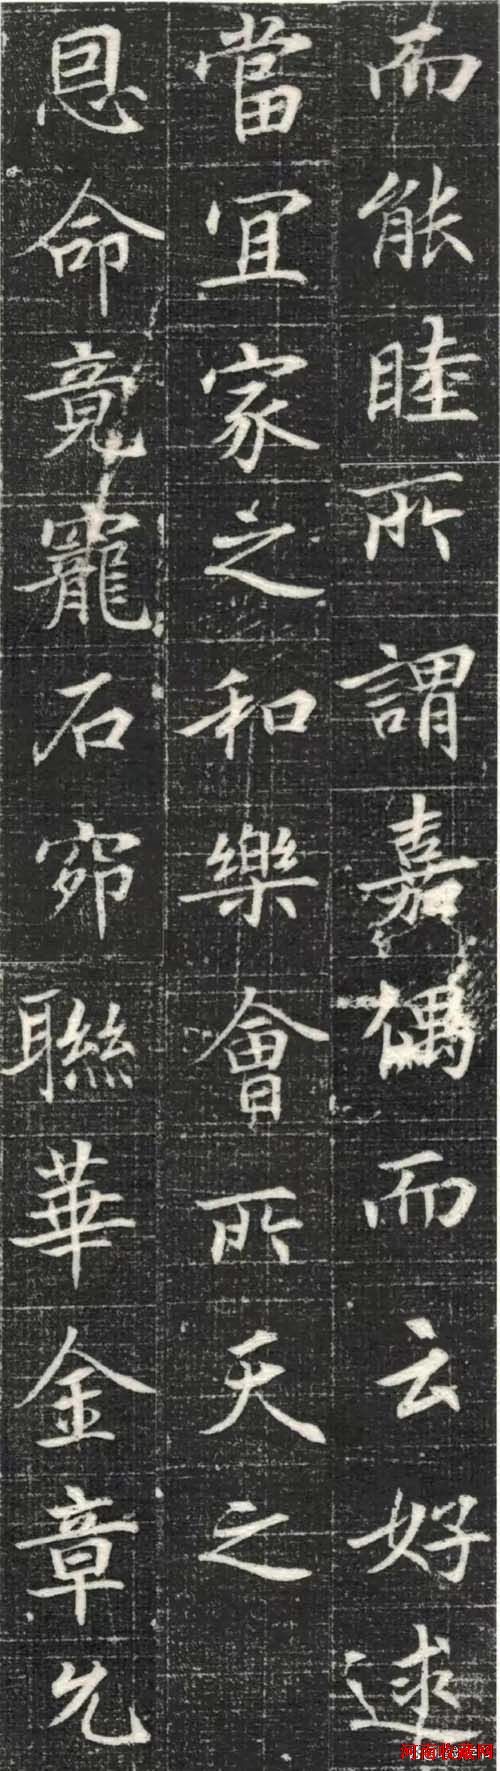 而能睦所謂嘉偶而云好逑
當宜家之和樂會所天之
恩命竟窆石窌聯華金章允
河南收藏网